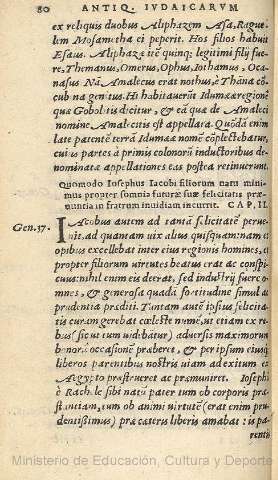 80 ANTIQ. IVDAICARVM
ex reliquis duobus Aliphazem Asa, Rague-
lem Mosametha ei peperit. Hos filios habuit
Esaus. Aliphazæ itẽ quinq; legitimi filij fue-
re, Themanus, Omerus, Ophus, Iothamus, Oca-
nasus. Nã Amalecus erat nothus, è Thãna cõcu-
bina genitus. Hi habitauerũt Idumææ regionẽ
quæ Gobolitis dicitur, & eã quæ de Amaleci
nomine Amalecitis est appellata. Quõdã enim
late patente terrã Idumææ nomẽ cõplectebatur,
cuius partes à primis colonorũ inductoribus de-
nominatæ appellationes eas postea retinuerunt.
Quomodo Iosephus Iacobi filiorum natu mini-
mus propter somnia futuræ suæ felicitatis præ-
nuncia in fratrum inuidiam incurrit. CAP. II.
Gen. 37. IAcobus autem ad tantã felicitatẽ perue-
nit, ad quantam vix alius quisquam: nam et
opibus excellebat inter eius regionis homines, et
propter filiorum virtutes beatus erat ac conspi-
cuus: nihil enim eis deerat, sed industrij fuere o-
mnes, & generosa quadã fortitudine simul ac
prudentia præditi. Tantam autẽ istius felicita-
tis curam gerebat cœleste numẽ, ut etiam ex re-
bus (sicut tum uidebatur) aduersis maximorum
bonorũ occasionẽ præberet, & per ipsum eiusq;
liberos parentibus nostris uiam ad exitum ex
Aegypto præstrueret ac præmuniret. Iosephũ
è Rachele sibi natũ pater tum ob corporis præ-
stantiam, tum ob animi virtutẽ (erat enim pru-
dentissimus) præ cæteris liberis amabat: is pa-
rentis
Ministerio de Educación, Cultura y Deporte